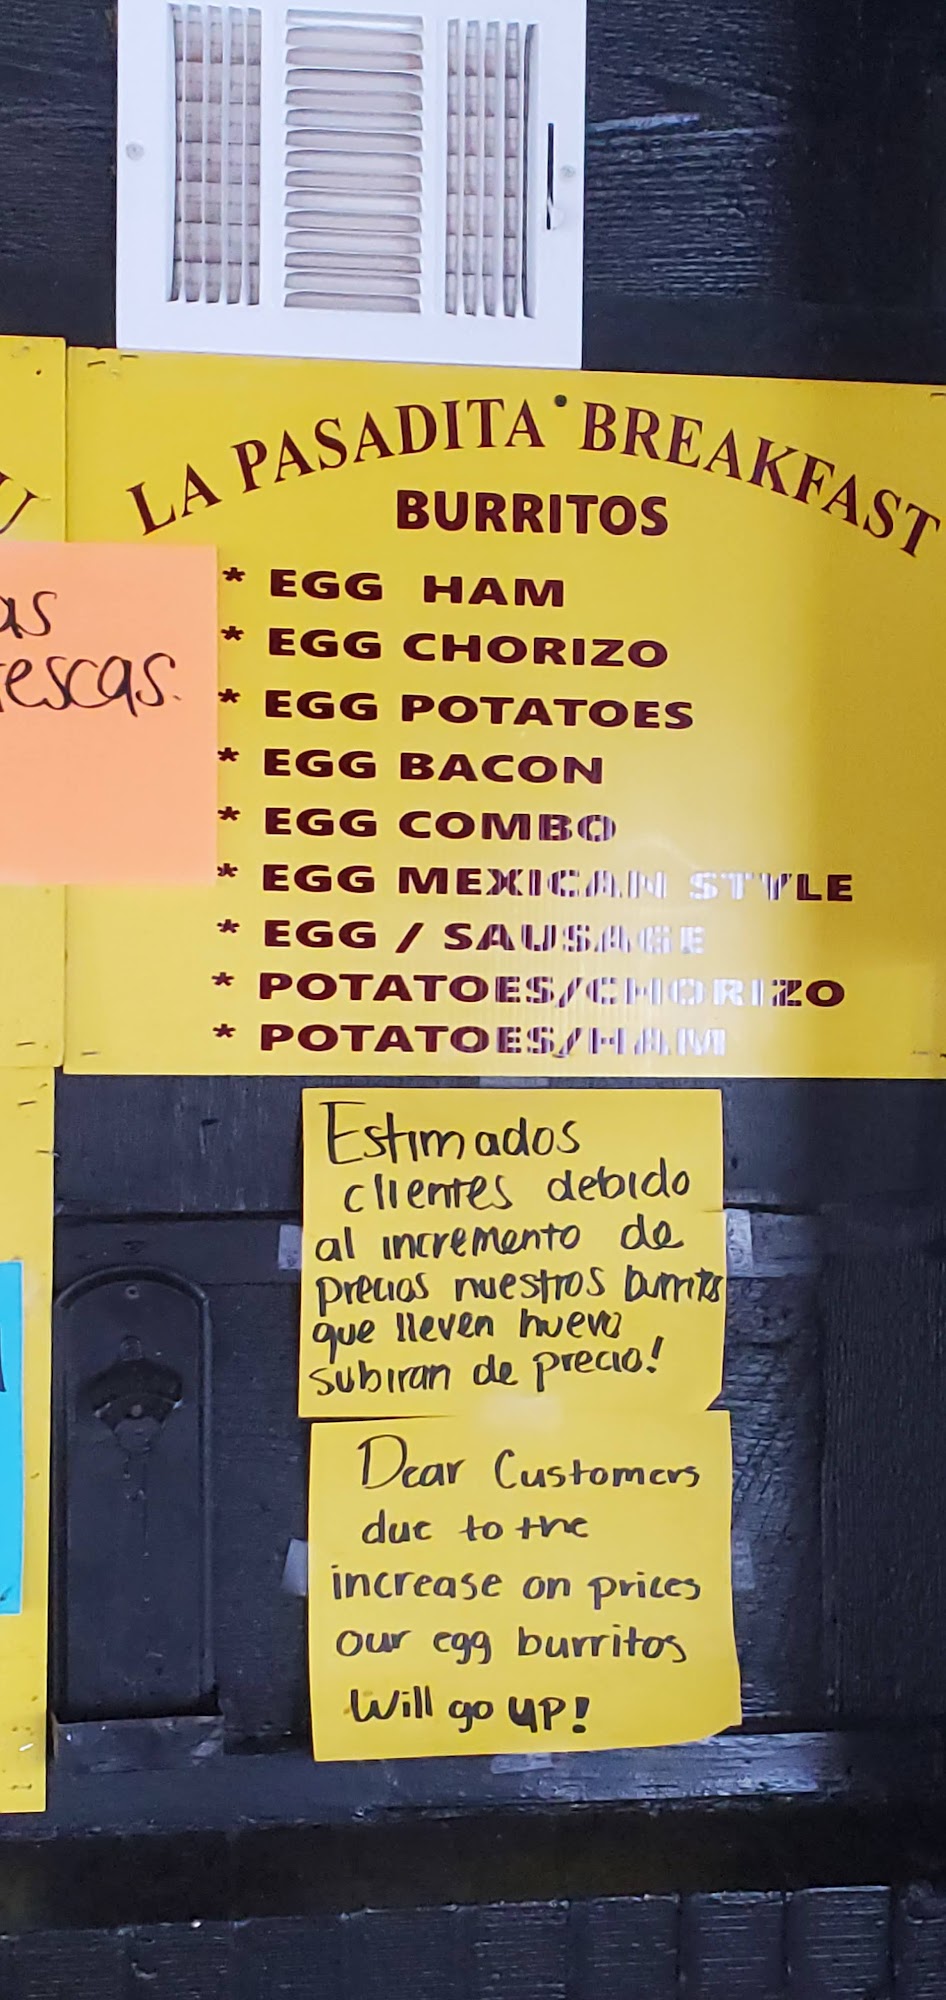 LA PASADITA BREAKFAST
BURRITOS
* EGG HAM
* EGG CHORIZO
* EGG POTATOES
* EGG BACON
* EGG COMBO
* EGG MEXICAN STYLE
* EGG / SAUSAGE
* POTATOES/CHORIZO
* POTATOES/HAM
Estimados
clientes debido
al incremento de
precios nuestros burritos
que lleven huevo
subiran de precio!
Dear Customers
due to the
increase on prices
our egg burritos
Will go up!